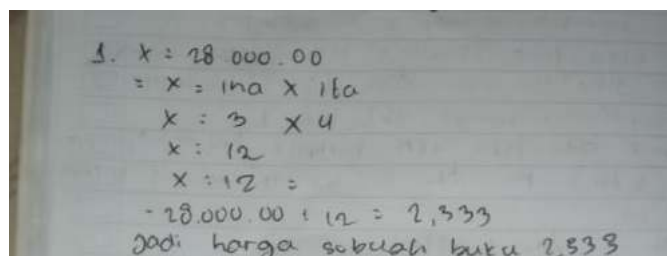 1. x = 28 000.00
= x = ina x ita
x = 3 x 4
x = 12
x = 12 =
- 28.000.00 : 12 = 2,333
Jadi harga sebuah buku 2,333